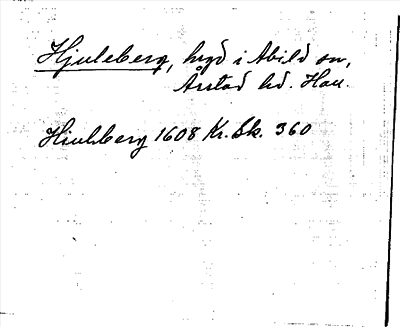 Hjuleberg, hrgd i Abild sn,
Årstad hd. Hall.
Hiulsberg 1608 Kr. Sk. 360